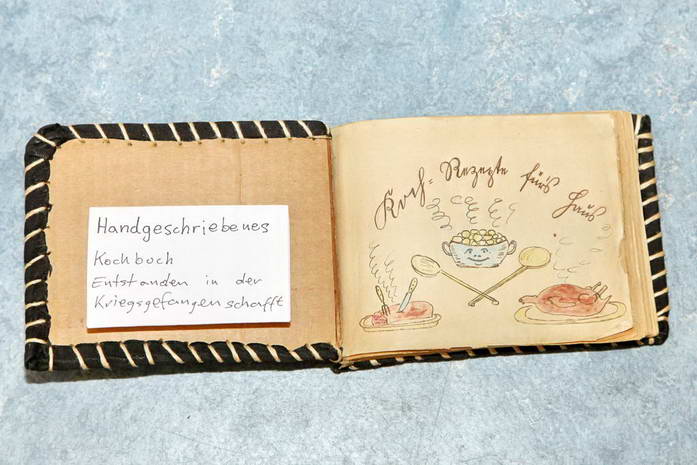 Handgeschriebenes
Kochbuch
Entstanden in der
Kriegsgefangenschafft
Koch-Rezepte für's Haus